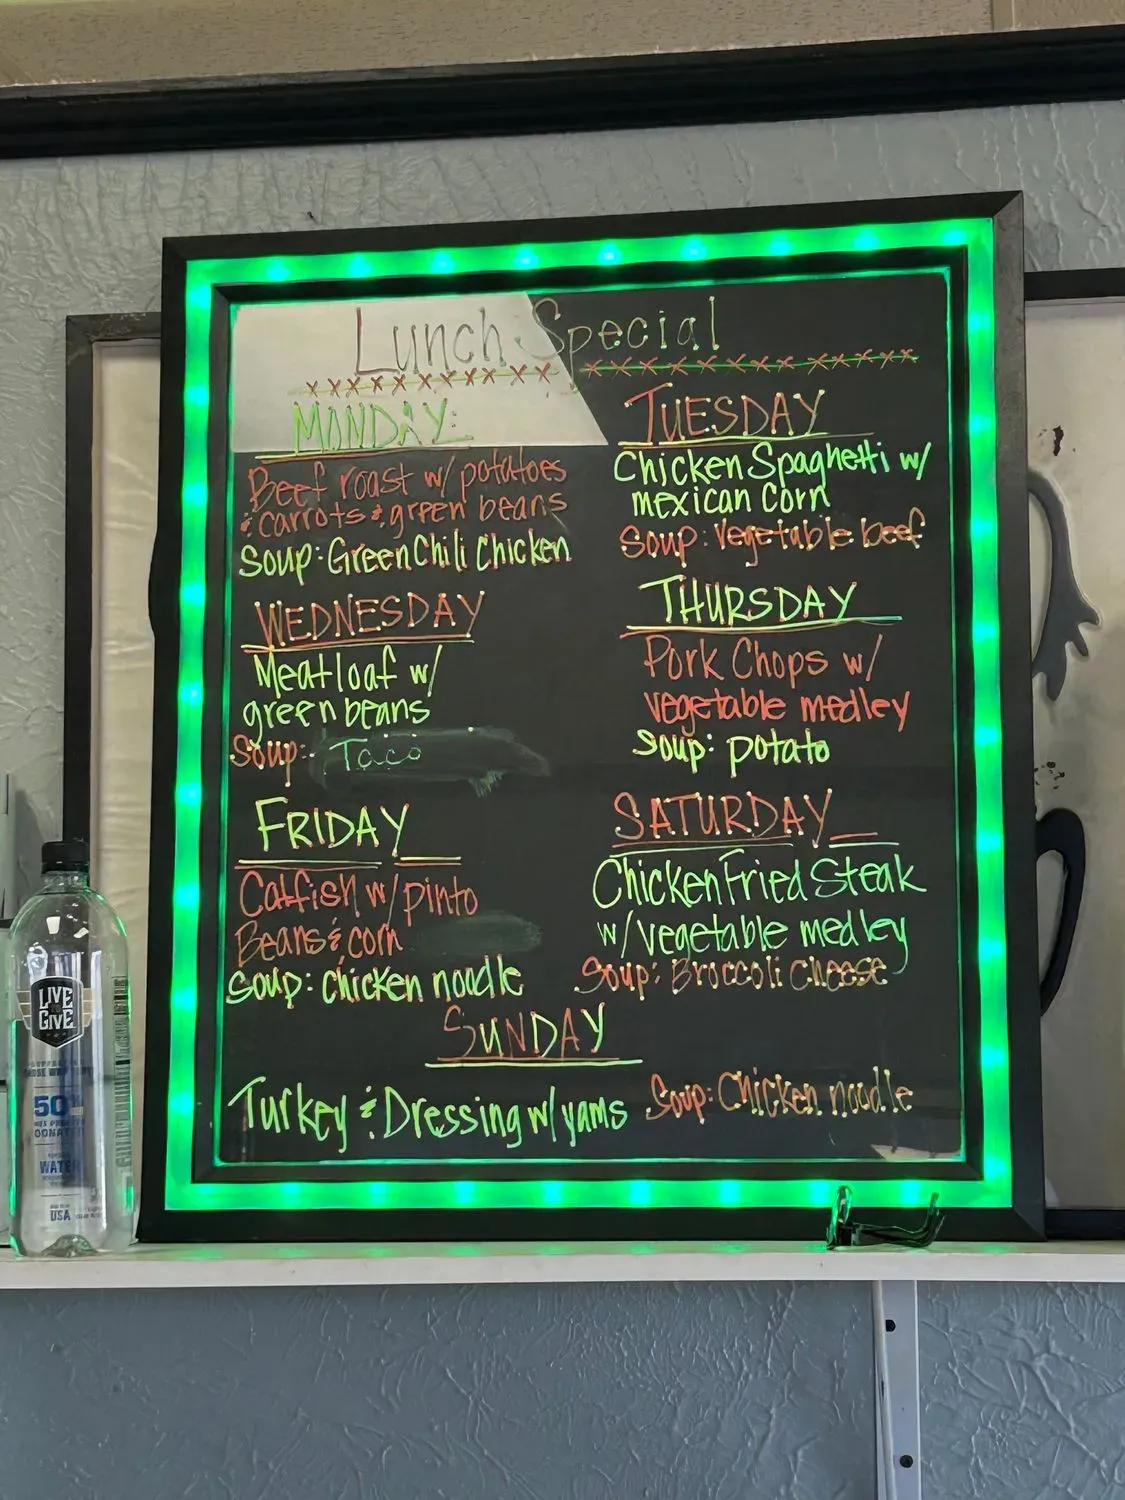 Lunch Special
MONDAY:
Beef roast w/ potatoes
& carrots & green beans
Soup: Green Chili Chicken
TUESDAY
Chicken Spaghetti w/
mexican Corn
Soup: Vegetable beef
WEDNESDAY
Meatloaf w/
green beans
Soup: Taco
THURSDAY
Pork Chops w/
vegetable medley
Soup: potato
FRIDAY
Catfish w/ pinto
Beans & corn
Soup: Chicken noodle
SATURDAY
Chicken Fried Steak
w/ vegetable medley
Soup: Broccoli Cheese
SUNDAY
Turkey & Dressing w/ yams
Soup: Chicken noodle
LIVE
GIVE
50%
DONATED
WATER
USA